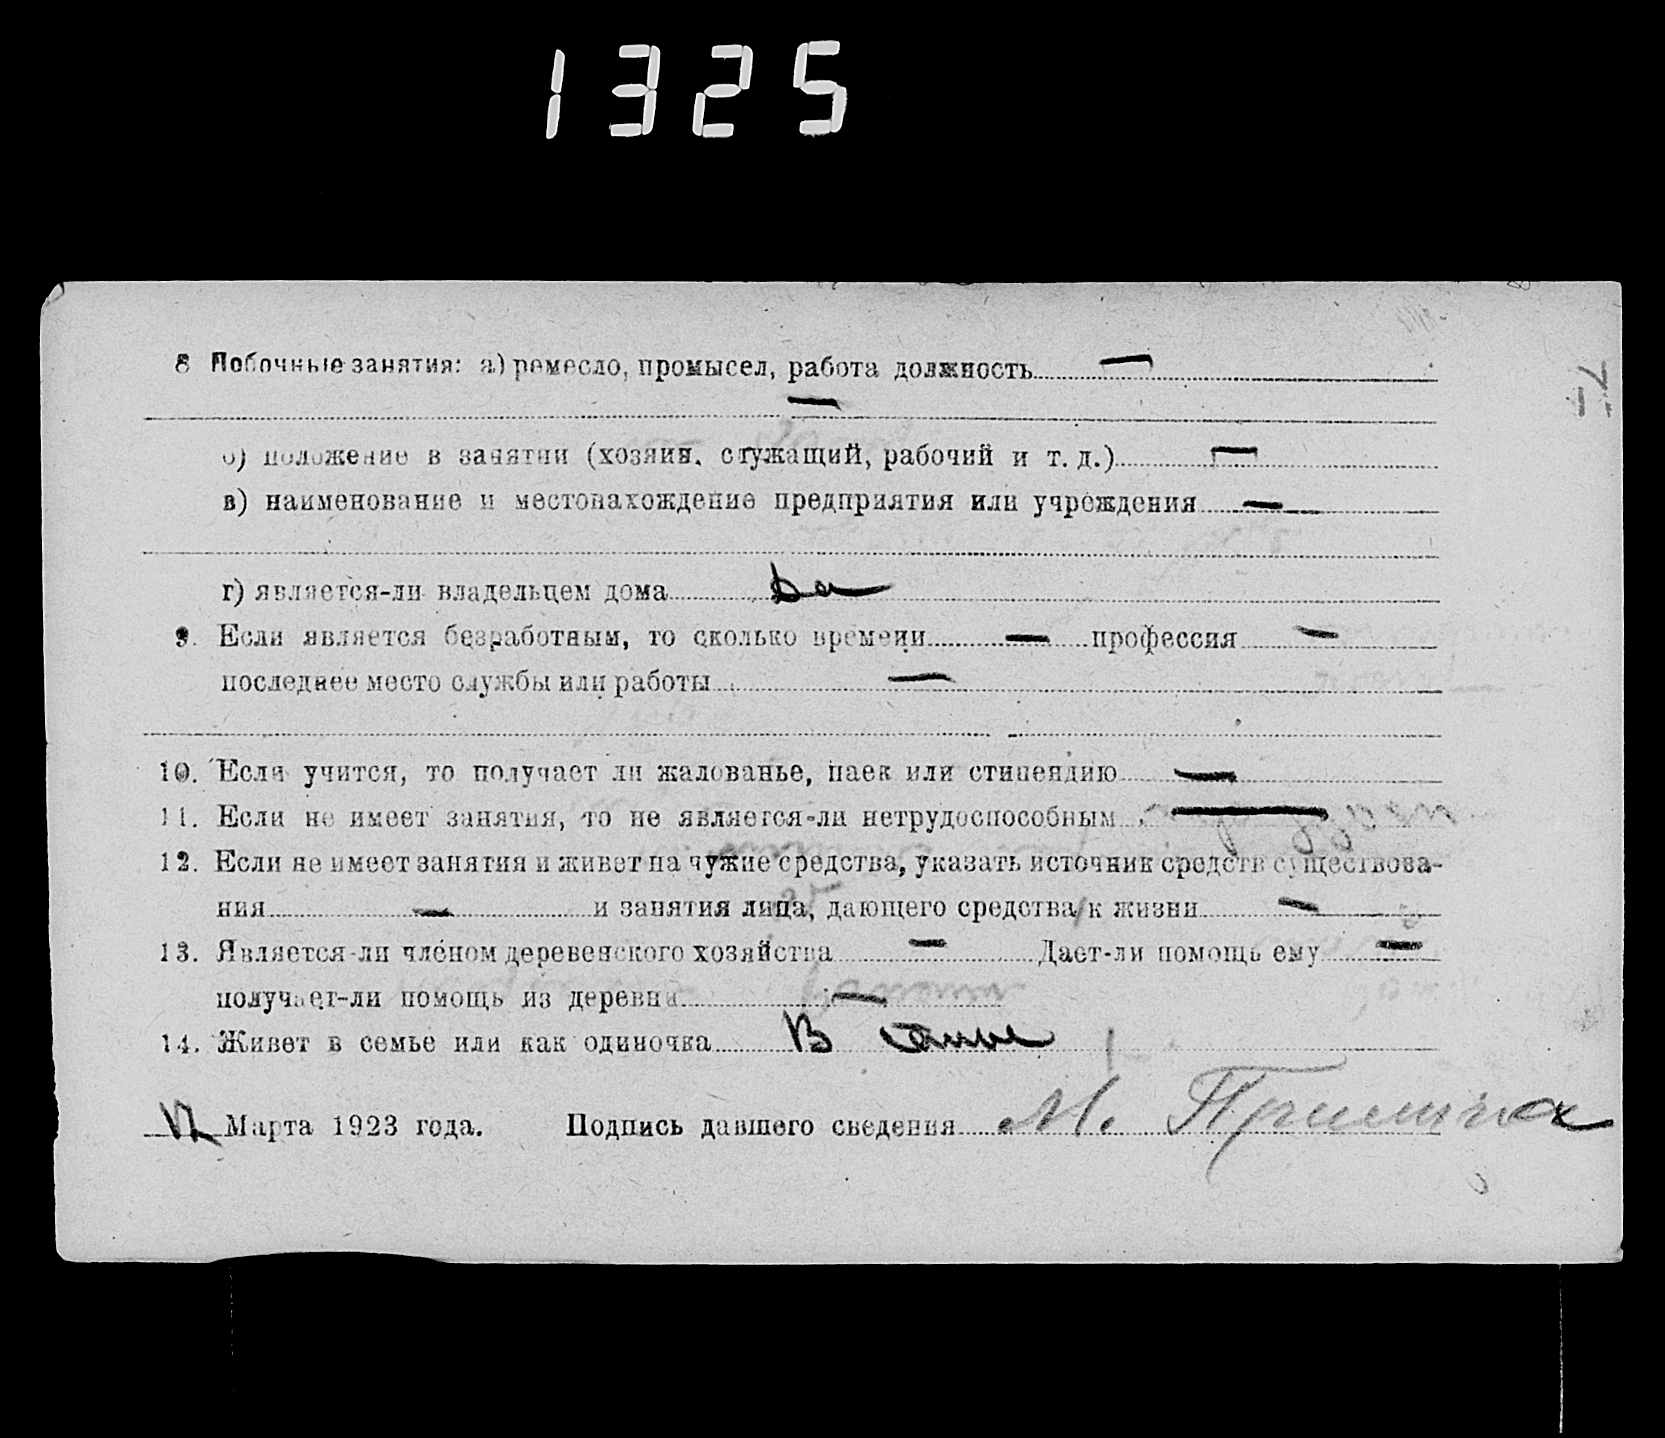 1325
8 Побочные занятия: а) ремесло, промысел, работа должность —
—
б) положение в занятии (хозяин, служащий, рабочий и т. д.) —
в) наименование и местонахождение предприятия или учреждения —
г) является-ли владельцем дома Да
9. Если является безработным, то сколько времени — профессия —
последнее место службы или работы —
10. Если учится, то получает ли жалованье, паек или стипендию —
11. Если не имеет занятия, то не является-ли нетрудоспособным —
12. Если не имеет занятия и живет на чужие средства, указать источник средств существова-
ния — и занятия лица, дающего средства к жизни —
13. Является-ли членом деревенского хозяйства — Дает-ли помощь ему —
получает-ли помощь из деревни —
14. Живет в семье или как одиночка В семье
Марта 1923 года. Подпись давшего сведения М.